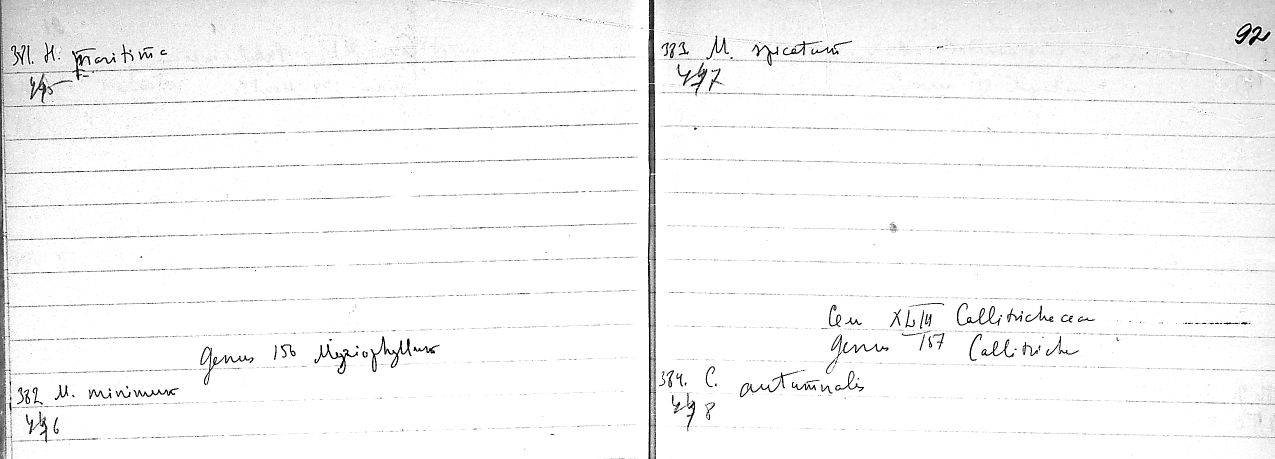 381. H. maritima
Genus 156 Myriophyllum
382 M. minimum
92
383. M. spicatum
Сем XLIII Callitrichaceae
Genus 157 Callitriche
384. C. autumnalis